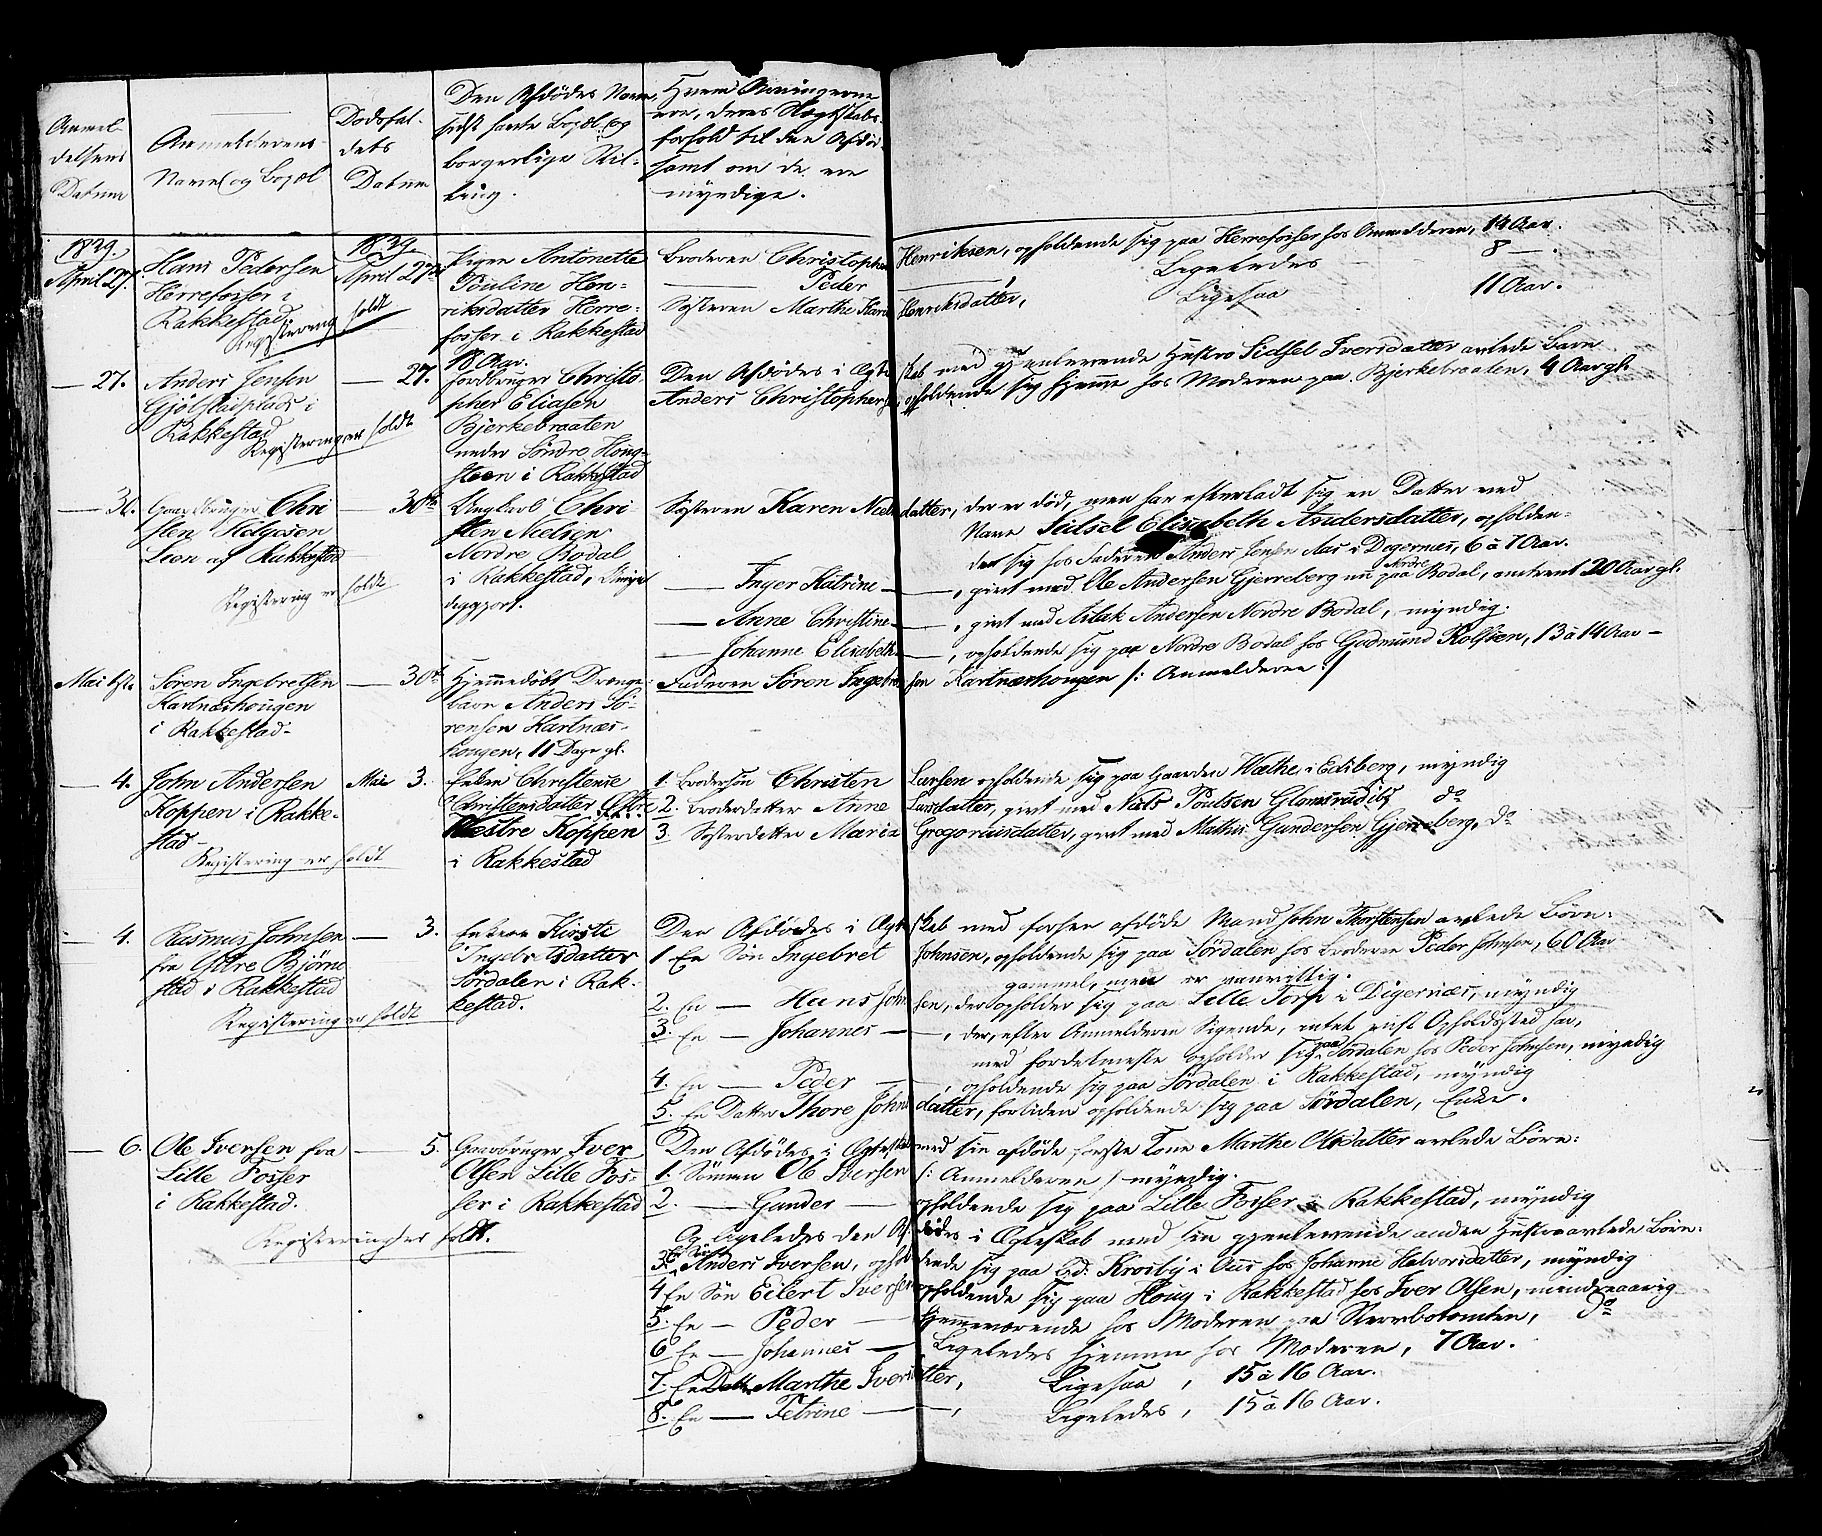 Anmel-
delsens
Datum
Anmelderens
Navn og Bopæl
Dødsfal-
dets
Datum
Den Afdødes Navn,
sidst havte Bopæl og
borgerlige Stil-
ling.
Hvem Arvingerne
ere, deres Slægtskabs-
forhold til den Afdøde
samt om de ere
myndige.
1839.
April 27.
Hans Pedersen
Herrefosser i
Rakkestad.
Registrering holdt
1839
April 27de
Pigen Antonette
Pouline Hen-
riksdatter Herre-
fosser i Rakkestad
18 Aar.
Broderen Christopher Henriksen, opholdende sig paa Herrefosser hos Anmelderen, 14 Aar.
— Peder — Ligeledes 8 —.
Søsteren Marthe Karie Henriksdatter, Ligesaa 11 Aar.
— 27.
Anders Jensen
Gjølstadplads i
Rakkestad
Registrering er holdt
— 27.
Jordbruger Christo-
pher Eliasen
Bjerkebraaten
under Søndre Houg-
steen i Rakkestad
Den Afdødes i Ægteskab med gjenlevende Hustro Sidsel Iversdatter avlede Barn
Anders Christophersen, opholdende sig hjemme hos Moderen paa Bjerkebraaten, 4 Aar gl.
— 30.
Gaardbruger Chri-
sten Helgesen
Lien af Rakkestad
Registrering er holdt
— 30te
Ungkarl Chri-
sten Nielsen
Nordre Bodal
i Rakkestad,
Søsteren Karen Nielsdatter, der er død, men har efterladt sig en Datter ved
Navn Sidsel Elisabeth Andersdatter, opholden-
des sig hos Faderen Anders Jensen Aas i Degernæs, 6 à 7 Aar.
— Inger Katrine — , givt med Ole Andersen Gjerreberg nu paa Nordre Bodal, omtrent 20 Aar gl.
— Anne Christine — , givt med Aslak Andersen Nordre Bodal, myndig.
— Johanne Elisabeth — , opholdende sig paa Nordre Bodal hos Gudmund Rolfsen, 13 à 14 Aar —
Mai 1ste
Søren Ingebretsen
Kartnæshougen
i Rakkestad.
— 30te
Hjemmedøbt Drenge-
barn Anders Sø-
rensen Kartnæs-
hougen, 11 Dage gl.
Faderen Søren Ingebretsen Kartnæshougen /: Anmelderen :/
— 4.
John Andersen
Koppen i Rakke-
stad
Registrering er holdt
Mai 3.
Enken Christense
Christensdatter Østre
Vestre Koppen
i Rakkestad
1. Brodersøn Christen Larsen opholdende sig paa Gaarden Wæthe i Edsberg, myndig
2. Broderdatter Anne Larsdatter, givt med Niels Poulsen do
3. Søsterdatter Maria Gregoriusdatter, givt med Mathis Gundersen Gjerreberg, do
— 4.
Rasmus Johnsen
fra Østre Bjørne-
stad i Rakkestad
Registrering er holdt
— 3.
Enken Kirsti
Ingebretsdatter
Sørdalen i Rak-
kestad.
Den Afdødes i Ægteskab med forhen afdøde Mand John Thorstensen avlede Børn:
1 En Søn Ingebret Johnsen, opholdende sig paa Sørdalen hos Broderen Peder Johnsen, 60 Aar
gammel, men er vanvittig.
2. En — Hans Johnsen, der opholder sig paa Lille Torp i Digernæs, myndig
3. En — Johannes — , der, efter Anmelderens Sigende, intet vist Opholdssted har,
med fordetmeste opholder sig paa Sørdalen hos Peder Johnsen, myndig
4. En — Peder — , opholdende sig paa Sørdalen i Rakkestad, myndig
5. En Datter Thore Johnsdatter, fortiden opholdende sig paa Sørdalen, Enke.
— 6.
Ole Iversen fra
Lille Fosser
i Rakkestad.
Registrering er holdt.
— 5.
Gaardbruger Iver
Olsen Lille Fos-
ser i Rakkestad
Den Afdødes i Ægteskab med sin afdøde første Kone Marthe Olsdatter avlede Børn:
1. Sønnen Ole Iversen /: Anmelderen / myndig.
2. — Gunder — opholdende sig paa Lille Fosser i Rakkestad, myndig
Og ligeledes den Afdødes i Ægteskab med sin gjenlevende anden Hustro avlede Børn:
3. En Søn Anders Iversen, opholdende sig paa Gd. Krosby i Aas hos Johanne Halvorsdatter, myndig
4 En Søn Eilert Iversen opholdende sig paa Houg i Rakkestad hos Iver Olsen, mindreaarig
5. En — Peder — Hjemmeværende hos Moderen paa do
6 En — Johannes — Ligeledes hjemme hos Moderen, 7 Aar.
7. En Datter Marthe Iversdatter, Ligesaa, 15 à 16 Aar.
8. En — Petrine — , Ligeledes, 15 à 16 Aar.